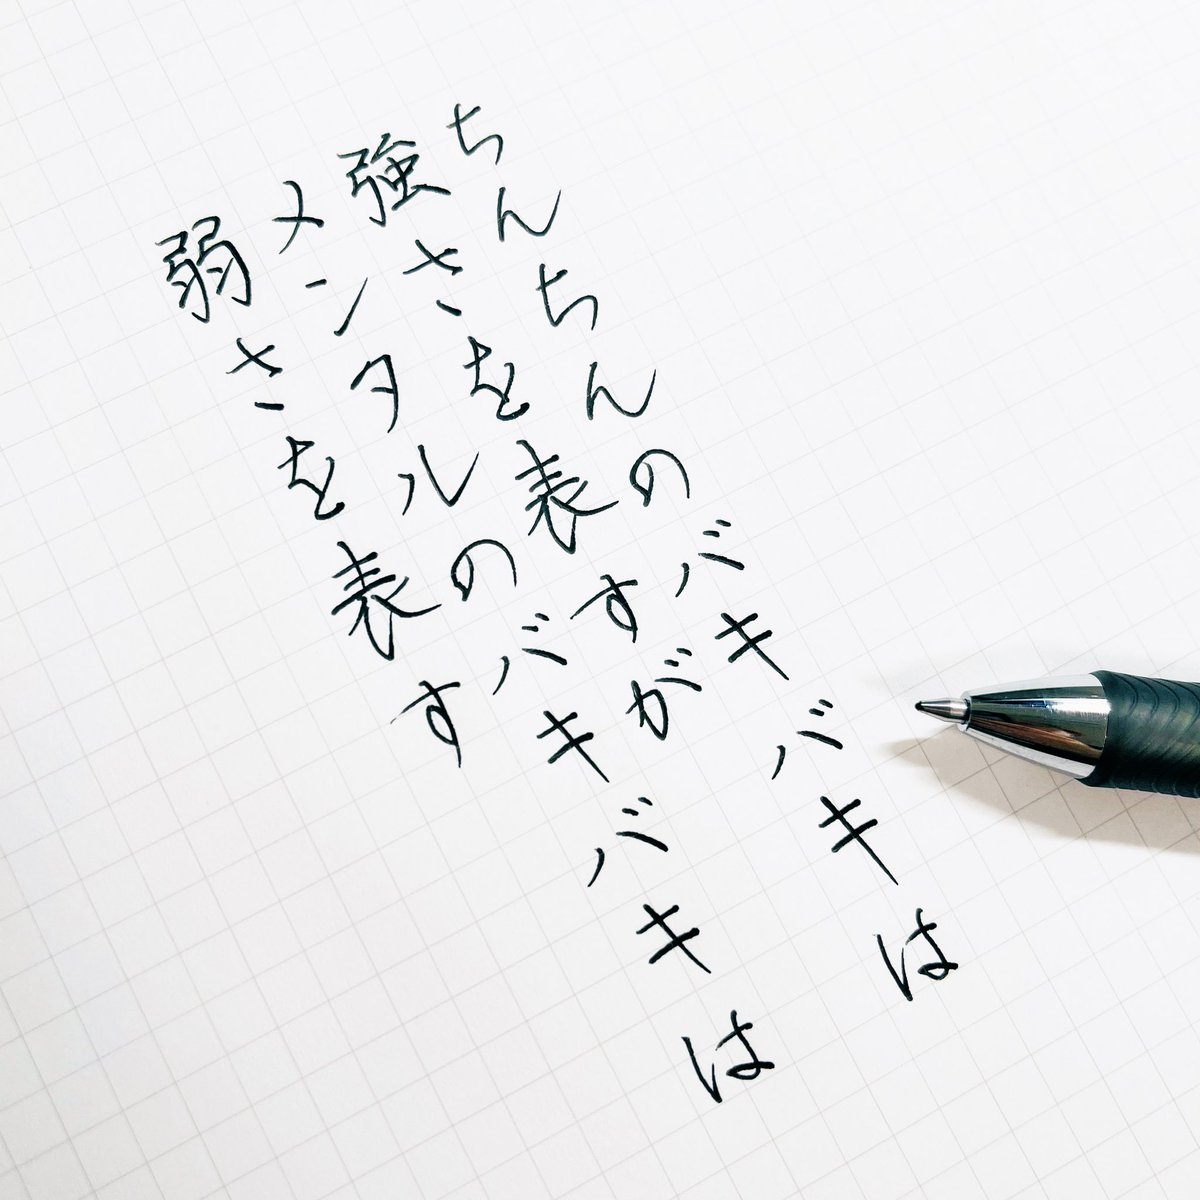 ちんちんのバキバキは
強さを表すが
メンタルのバキバキは
弱さを表す